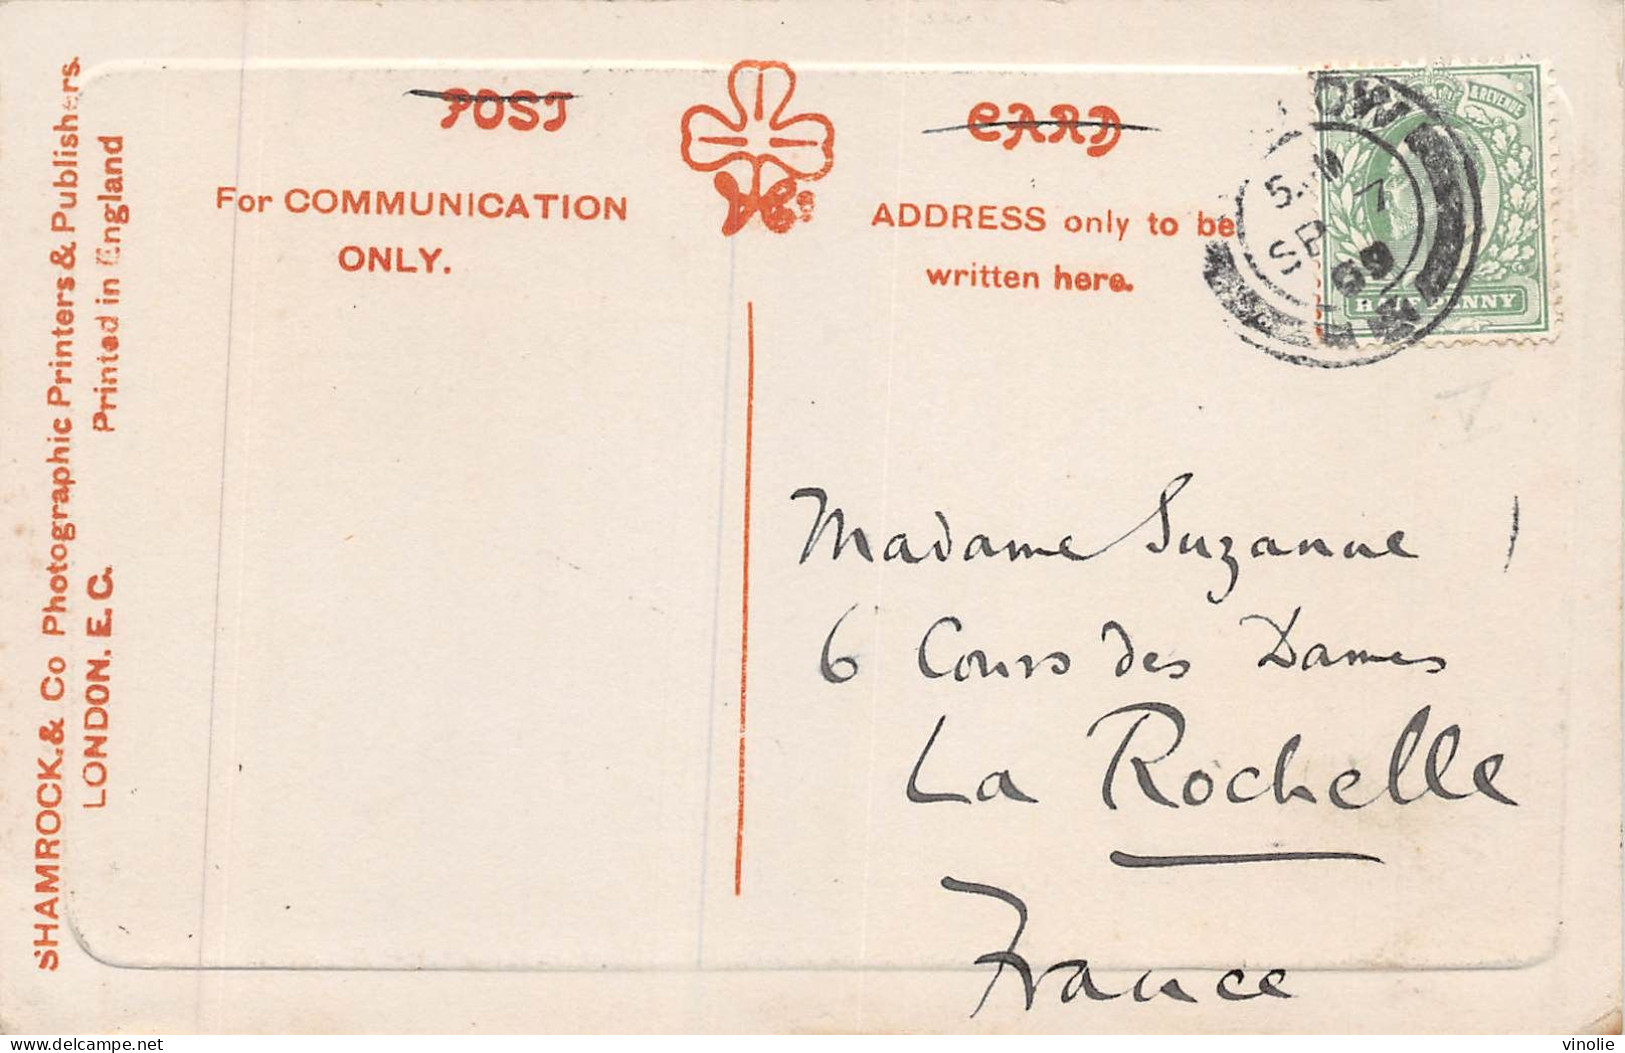 SHAMROCK.& Co Photographic Printers & Publishers.
LONDON. E. C. Printed in England
POST CARD
For COMMUNICATION
ONLY.
& Co
ADDRESS only to be
written here.
& REVENUE
HALFPENNY
SP 7
09
Madame Suzanne
6 Cours des Dames
La Rochelle
France
delcampe.net
vinolie